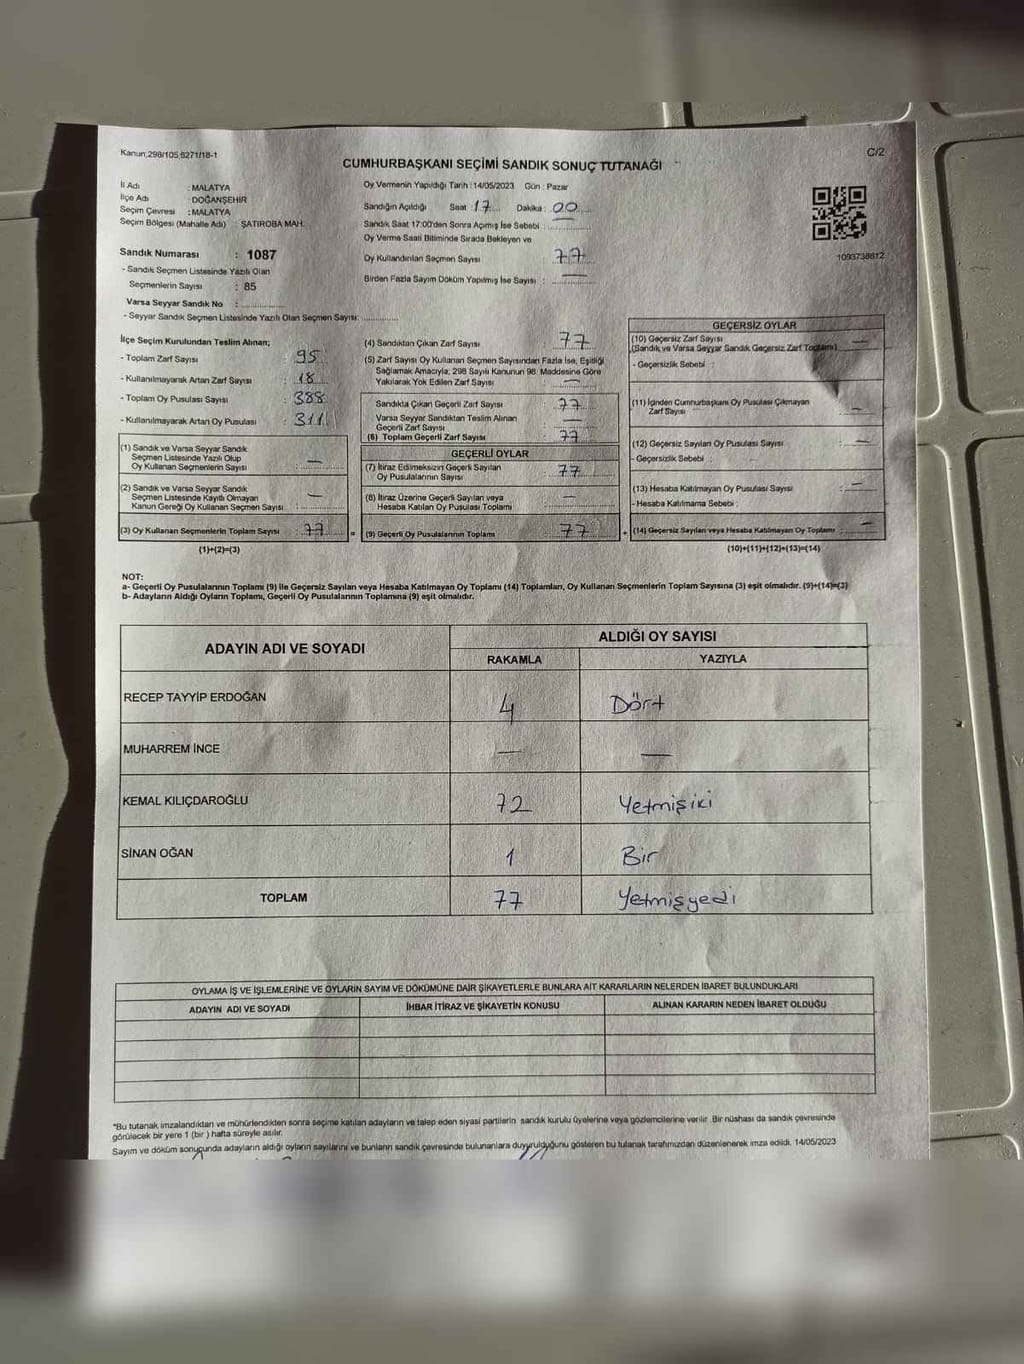 Kanun:298/105,6271/18-1
C/2
CUMHURBAŞKANI SEÇİMİ SANDIK SONUÇ TUTANAĞI
İl Adı : MALATYA
İlçe Adı : DOĞANŞEHİR
Seçim Çevresi : MALATYA
Seçim Bölgesi (Mahalle Adı) : ŞATIROBA MAH.
Sandık Numarası : 1087
- Sandık Seçmen Listesinde Yazılı Olan
Seçmenlerin Sayısı : 85
Varsa Seyyar Sandık No :
- Seyyar Sandık Seçmen Listesinde Yazılı Olan Seçmen Sayısı:
Oy Vermenin Yapıldığı Tarih : 14/05/2023 Gün : Pazar
Sandığın Açıldığı Saat : 17 Dakika : 00
Sandık Saat 17:00'den Sonra Açımış İse Sebebi : —
Oy Verme Saati Bitiminde Sırada Bekleyen ve
Oy Kullandırılan Seçmen Sayısı : 77
Birden Fazla Sayım Döküm Yapılmış İse Sayısı : —
1093738612
İlçe Seçim Kurulundan Teslim Alınan;
- Toplam Zarf Sayısı : 95
- Kullanılmayarak Artan Zarf Sayısı : 18
- Toplam Oy Pusulası Sayısı : 388
- Kullanılmayarak Artan Oy Pusulası : 311
(1) Sandık ve Varsa Seyyar Sandık
Seçmen Listesinde Yazılı Olup
Oy Kullanan Seçmenlerin Sayısı : —
(2) Sandık ve Varsa Seyyar Sandık
Seçmen Listesinde Kayıtlı Olmayan
Kanun Gereği Oy Kullanan Seçmen Sayısı : —
(3) Oy Kullanan Seçmenlerin Toplam Sayısı : 77
(1)+(2)=(3)
(4) Sandıktan Çıkan Zarf Sayısı : 77
(5) Zarf Sayısı Oy Kullanan Seçmen Sayısından Fazla İse, Eşitliği
Sağlamak Amacıyla; 298 Sayılı Kanunun 98. Maddesine Göre
Yakılarak Yok Edilen Zarf Sayısı : —
Sandıkta Çıkan Geçerli Zarf Sayısı : 77
Varsa Seyyar Sandıktan Teslim Alınan
Geçerli Zarf Sayısı : —
(6) Toplam Geçerli Zarf Sayısı : 77
GEÇERLİ OYLAR
(7) İtiraz Edilmeksizin Geçerli Sayılan
Oy Pusulalarının Sayısı : 77
(8) İtiraz Üzerine Geçerli Sayılan veya
Hesaba Katılan Oy Pusulası Toplamı : —
= (9) Geçerli Oy Pusulalarının Toplamı : 77
GEÇERSİZ OYLAR
(10) Geçersiz Zarf Sayısı
(Sandık ve Varsa Seyyar Sandık Geçersiz Zarf Toplamı) : —
- Geçersizlik Sebebi :
(11) İçinden Cumhurbaşkanı Oy Pusulası Çıkmayan
Zarf Sayısı : —
(12) Geçersiz Sayılan Oy Pusulası Sayısı : —
- Geçersizlik Sebebi :
(13) Hesaba Katılmayan Oy Pusulası Sayısı : —
- Hesaba Katılmama Sebebi :
+ (14) Geçersiz Sayılan veya Hesaba Katılmayan Oy Toplamı : —
(10)+(11)+(12)+(13)=(14)
NOT:
a- Geçerli Oy Pusulalarının Toplamı (9) ile Geçersiz Sayılan veya Hesaba Katılmayan Oy Toplamı (14) Toplamları, Oy Kullanan Seçmenlerin Toplam Sayısına (3) eşit olmalıdır. (9)+(14)=(3)
b- Adayların Aldığı Oyların Toplamı, Geçerli Oy Pusulalarının Toplamına (9) eşit olmalıdır.
ADAYIN ADI VE SOYADI
ALDIĞI OY SAYISI
RAKAMLA YAZIYLA
RECEP TAYYİP ERDOĞAN 4 Dört
MUHARREM İNCE — —
KEMAL KILIÇDAROĞLU 72 Yetmişiki
SİNAN OĞAN 1 Bir
TOPLAM 77 Yetmişyedi
OYLAMA İŞ VE İŞLEMLERİNE VE OYLARIN SAYIM VE DÖKÜMÜNE DAİR ŞİKAYETLERLE BUNLARA AİT KARARLARIN NELERDEN İBARET BULUNDUKLARI
ADAYIN ADI VE SOYADI İHBAR İTİRAZ VE ŞİKAYETİN KONUSU ALINAN KARARIN NEDEN İBARET OLDUĞU
*Bu tutanak imzalandıktan ve mühürlendikten sonra seçime katılan adayların ve talep eden siyasi partilerin sandık kurulu üyelerine veya gözlemcilerine verilir. Bir nüshası da sandık çevresinde
görülecek bir yere 1 (bir ) hafta süreyle asılır.
Sayım ve döküm sonuçunda adayların aldığı oyların sayılarını ve bunların sandık çevresinde bulunanlara duyurulduğunu gösteren bu tutanak tarafımızdan düzenlenerek imza edildi. 14/05/2023